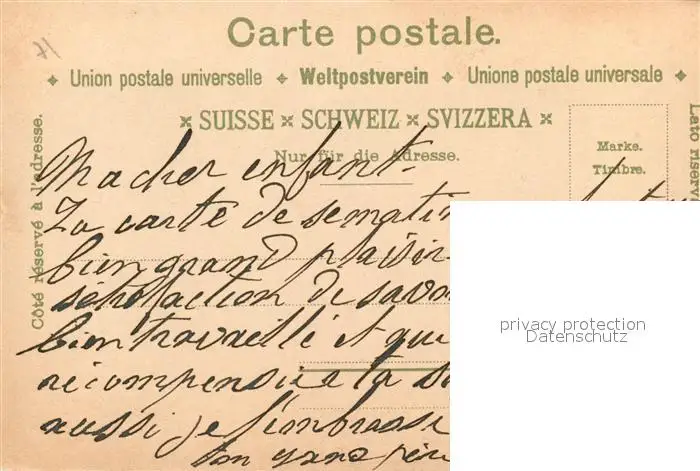 71
Carte postale.
Union postale universelle Weltpostverein Unione postale universale
SUISSE × SCHWEIZ × SVIZZERA
Nur für die Adresse.
Côté réservé à l'adresse.
Marke.
Timbre.
Lato riserva
Ma cher enfant.
Ta carte de ce matin
bien grand plaisir
satisfaction de savoi
bien travaillé et que
récompensée ta
aussi je t'embrasse
ton grand père
privacy protection
Datenschutz